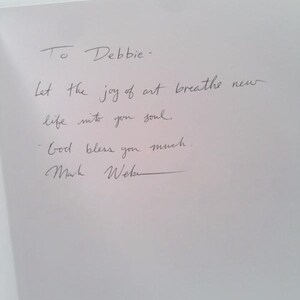 To Debbie -
Let the joy of art breathe new
life into you soul.
God bless you much.
Mark